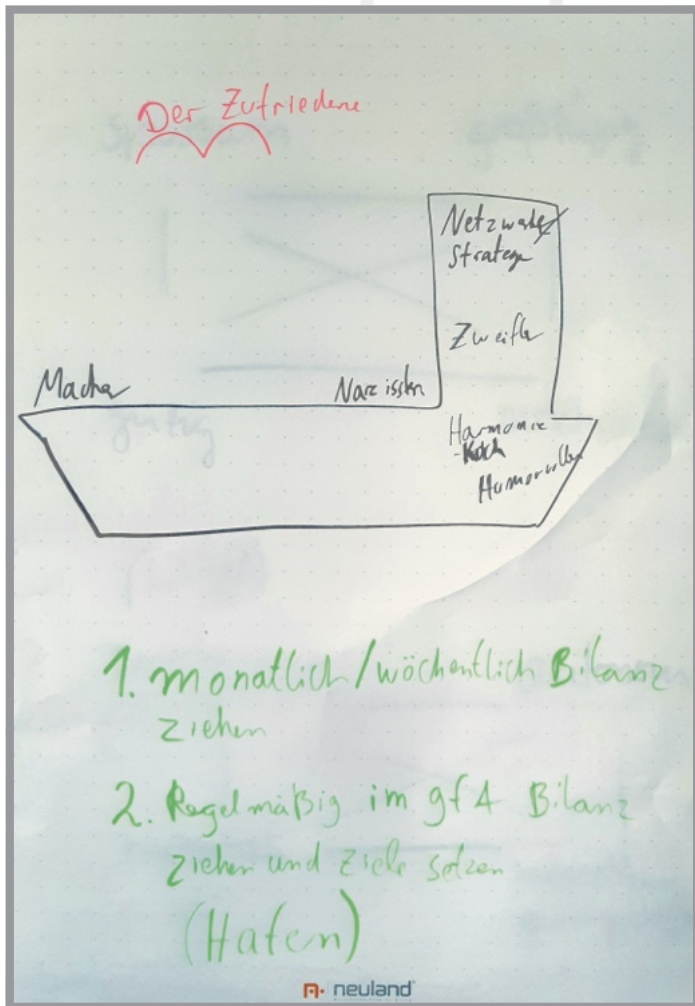 Der Zufriedene
Netzwerker
Stratege
Zweifler
Macher
Narzissten
Harmonie
-Koch
Humorvoller
1. monatlich/wöchentlich Bilanz
ziehen
2. Regelmäßig im gf4 Bilanz
ziehen und Ziele setzen
(Hafen)
neuland